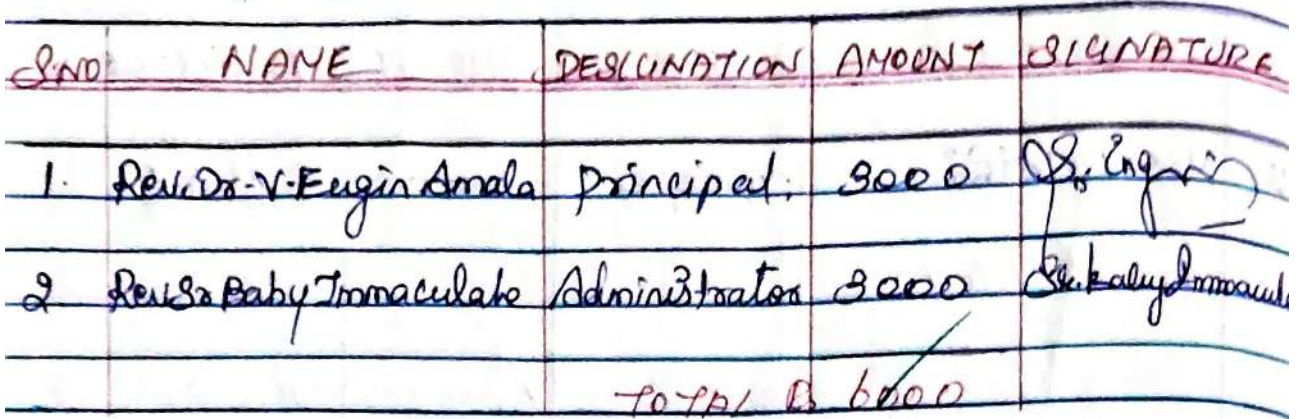 S.NO NAME DESIGNATION AMOUNT SIGNATURE
1. Rev. Dr. V. Eugin Amala Principal. 3000 Sr. Eugin
2 Rev Sr Baby Immaculate Administrator 3000 Sr. Baby Immacula
TOTAL 6000